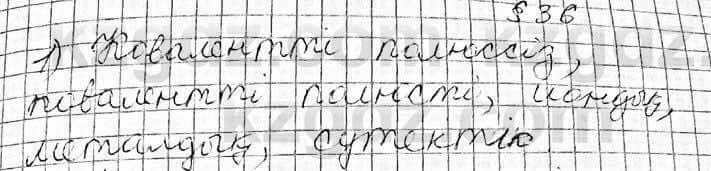 § 36
1) Ковалентті полюссіз,
ковалентті полюсті, иондық,
металдық, сутектік